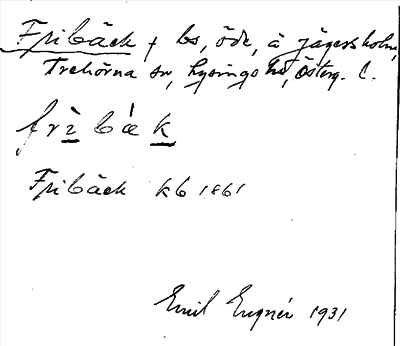 Fribäck † bs, öde, å Jägersholm,
Trehörna sn, Lysings hd, Österg. l.
frìbá̈k
Fribäck kb 1861
Emil Engnér 1931